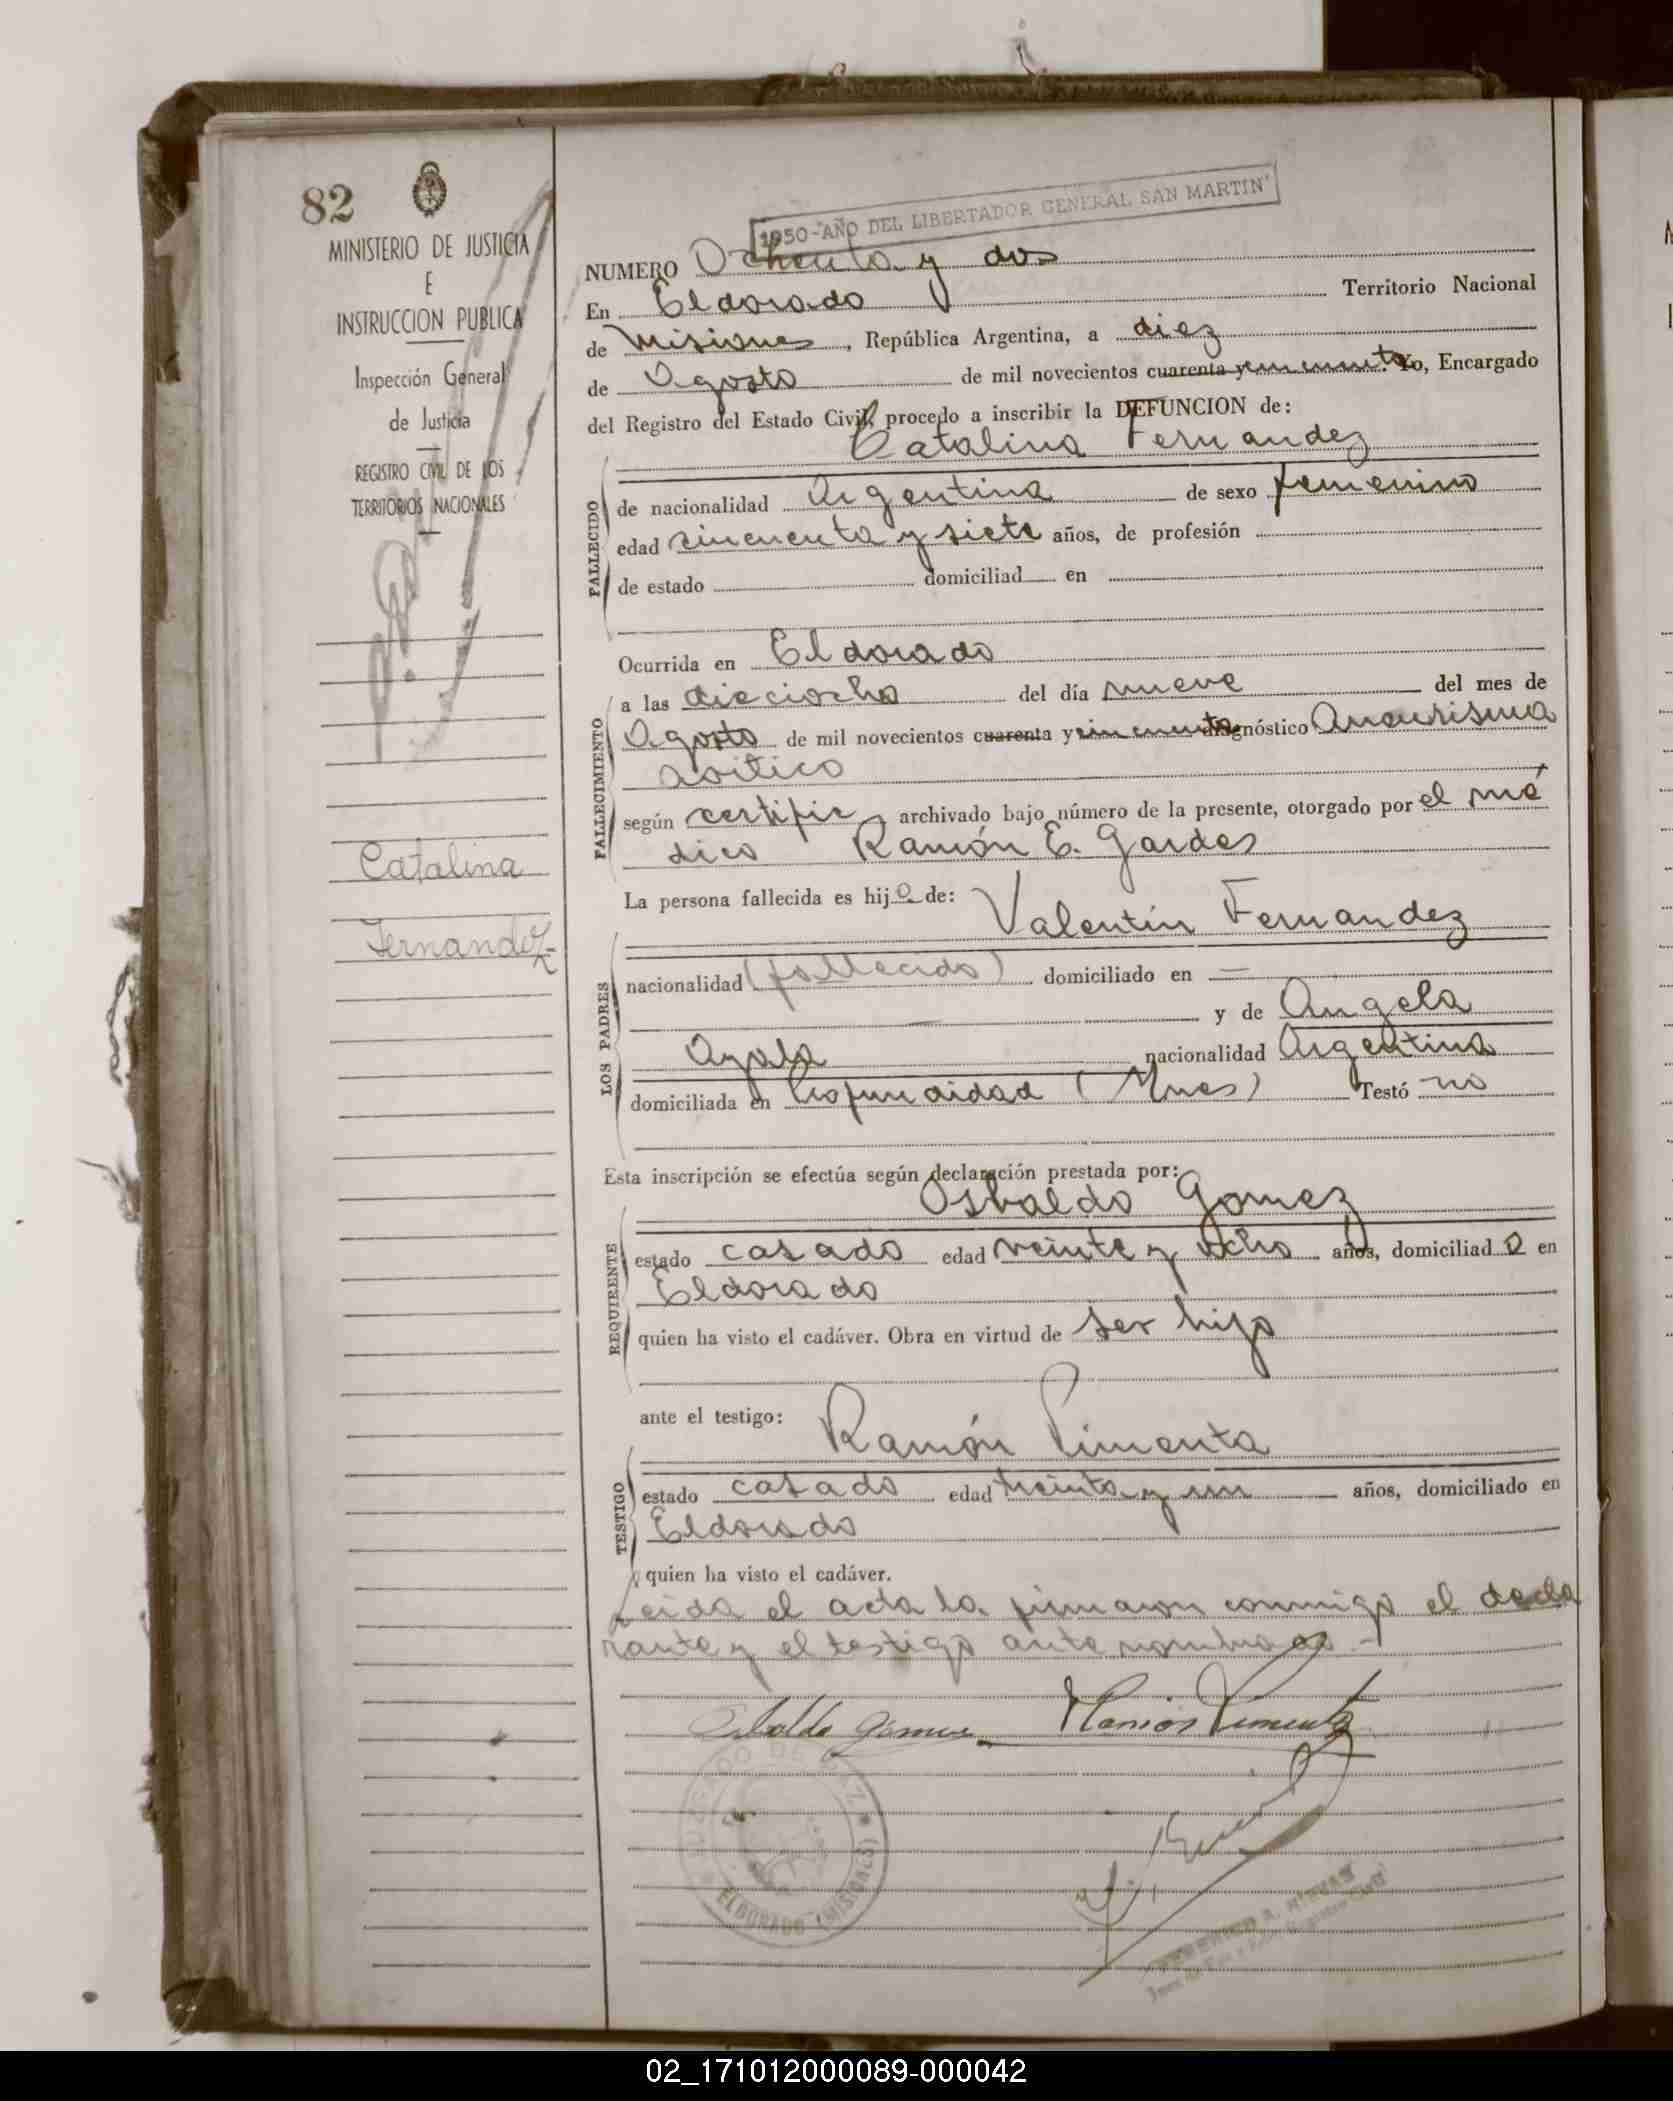 82
MINISTERIO DE JUSTICIA
E
INSTRUCCION PUBLICA
Inspección General
de Justicia
REGISTRO CIVIL DE LOS
TERRITORIOS NACIONALES
Catalina
Fernandez
1950-AÑO DEL LIBERTADOR GENERAL SAN MARTIN
NUMERO Ochenta y dos
En Eldorado Territorio Nacional
de Misiones, República Argentina, a diez
de Agosto de mil novecientos cuarenta y cincuenta. Yo, Encargado
del Registro del Estado Civil, procedo a inscribir la DEFUNCION de:
Catalina Fernandez
FALLECIDO
de nacionalidad Argentina de sexo femenino
edad cincuenta y siete años, de profesión
de estado domiciliad en
FALLECIMIENTO
Ocurrida en Eldorado
a las dieciocho del día nueve del mes de
Agosto de mil novecientos cuarenta y cincuenta diagnóstico Aneurisma
aoitico
según certific, archivado bajo número de la presente, otorgado por el mé
dico Ramón E. Gardes
La persona fallecida es hija de: Valentín Fernandez
LOS PADRES
nacionalidad (fallecido) domiciliado en —
y de Angela
Ayala nacionalidad Argentina
domiciliada en (Mnes) Testó no
Esta inscripción se efectúa según declaración prestada por:
Osbaldo Gomez
REQUIRENTE
estado casado edad veinte y ocho años, domiciliado en
Eldorado
quien ha visto el cadáver. Obra en virtud de ser hijo
ante el testigo: Ramón Pimenta
TESTIGO
estado casado edad treinta y un años, domiciliado en
Eldorado
quien ha visto el cadáver.
Leida el acta la firmaron conmigo el decla
rante y el testigo ante nombrados.-
Osbaldo Gomez Ramon Pimenta
JUZGADO DE PAZ
ELDORADO (MISIONES)
FEDERICO A. RIVAS
02_171012000089-000042